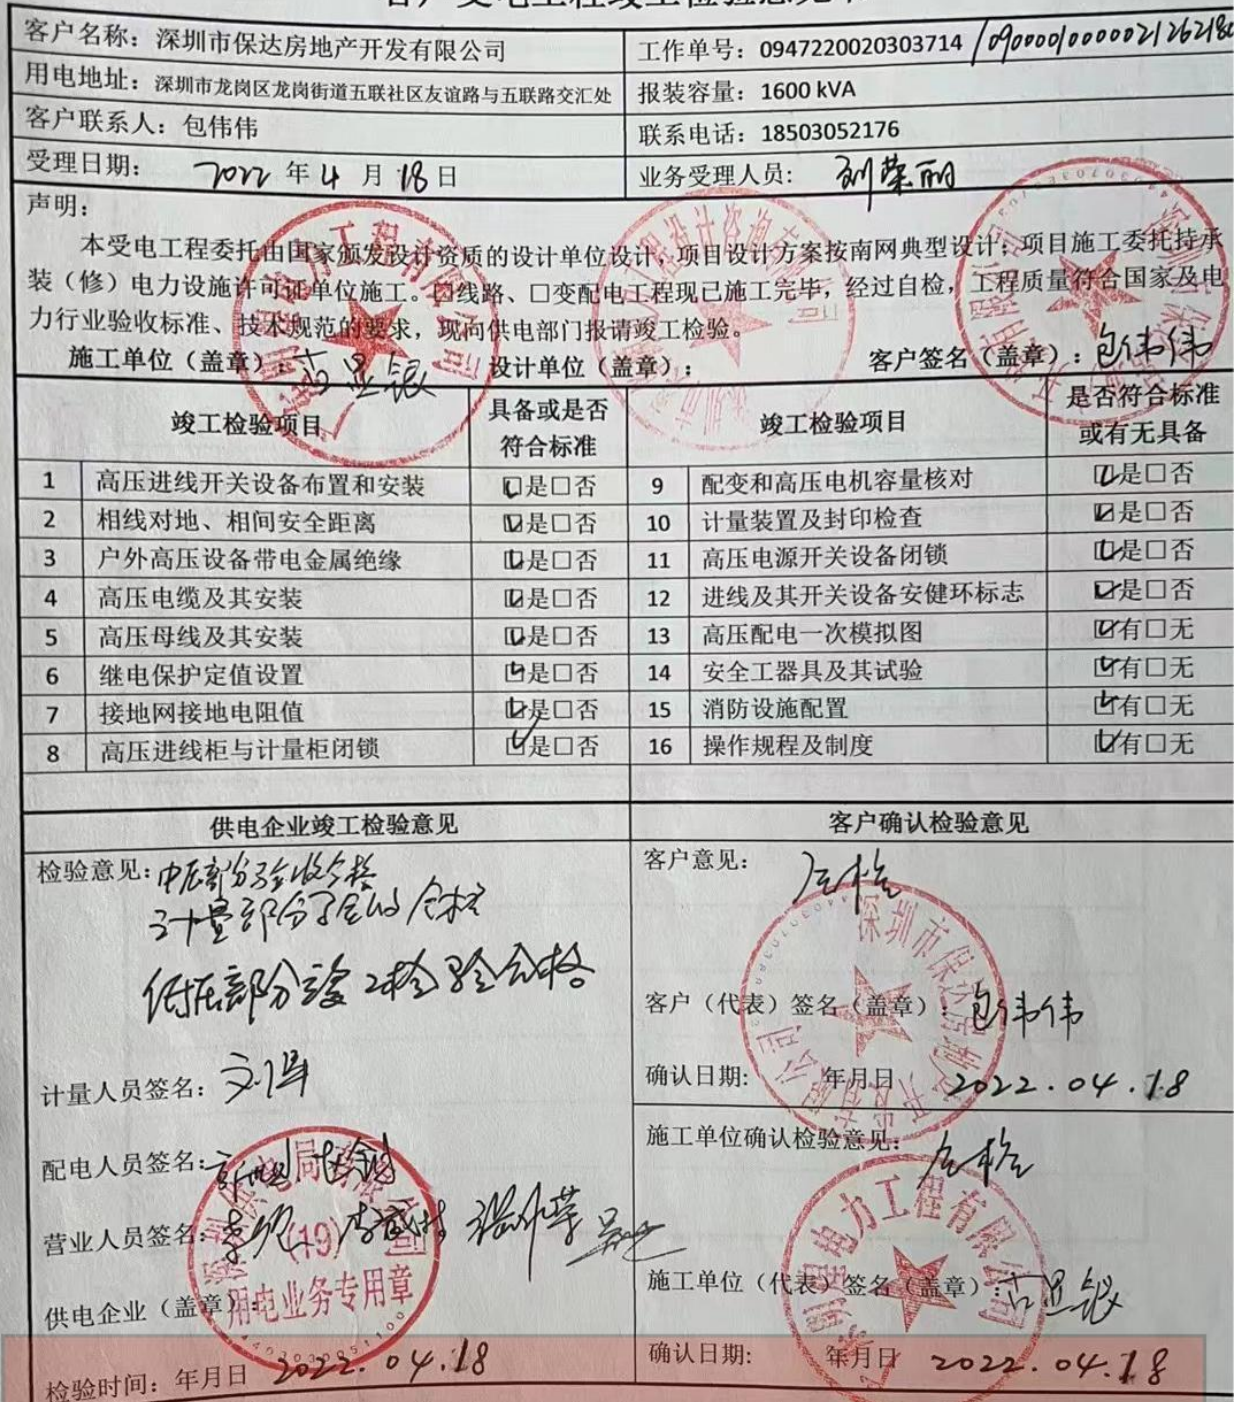 客户受电工程竣工检验意见单
客户名称：深圳市保达房地产开发有限公司
工作单号：0947220020303714 /090000100000212621​80
用电地址：深圳市龙岗区龙岗街道五联社区友谊路与五联路交汇处
报装容量：1600 kVA
客户联系人：包伟伟
联系电话：18503052176
受理日期：2022年4月18日
业务受理人员：刘荣丽
声明：
本受电工程委托由国家颁发设计资质的设计单位设计，项目设计方案按南网典型设计；项目施工委托持承
装（修）电力设施许可证单位施工。□线路、□变配电工程现已施工完毕，经过自检，工程质量符合国家及电
力行业验收标准、技术规范的要求，现向供电部门报请竣工检验。
施工单位（盖章）：古显银 设计单位（盖章）： 客户签名（盖章）：包伟伟
竣工检验项目 具备或是否符合标准 竣工检验项目 是否符合标准或有无具备
1 高压进线开关设备布置和安装 ☑是□否 9 配变和高压电机容量核对 ☑是□否
2 相线对地、相间安全距离 ☑是□否 10 计量装置及封印检查 ☑是□否
3 户外高压设备带电金属绝缘 ☑是□否 11 高压电源开关设备闭锁 ☑是□否
4 高压电缆及其安装 ☑是□否 12 进线及其开关设备安健环标志 ☑是□否
5 高压母线及其安装 ☑是□否 13 高压配电一次模拟图 ☑有□无
6 继电保护定值设置 ☑是□否 14 安全工器具及其试验 ☑有□无
7 接地网接地电阻值 ☑是□否 15 消防设施配置 ☑有□无
8 高压进线柜与计量柜闭锁 ☑是□否 16 操作规程及制度 ☑有□无
供电企业竣工检验意见
检验意见：中压部分验收合格
计量部分验收合格
低压部分竣工检验合格
计量人员签名：
配电人员签名：
营业人员签名：
供电企业（盖章）：
深圳供电局有限公司
(19)
用电业务专用章
检验时间：年月日 2022.04.18
客户确认检验意见
客户意见：合格
深圳市保达房地产开发有限公司
客户（代表）签名（盖章）：包伟伟
确认日期： 年月日 2022.04.18
施工单位确认检验意见：合格
电力工程有限公司
施工单位（代表）签名（盖章）：古显银
确认日期： 年月日 2022.04.18